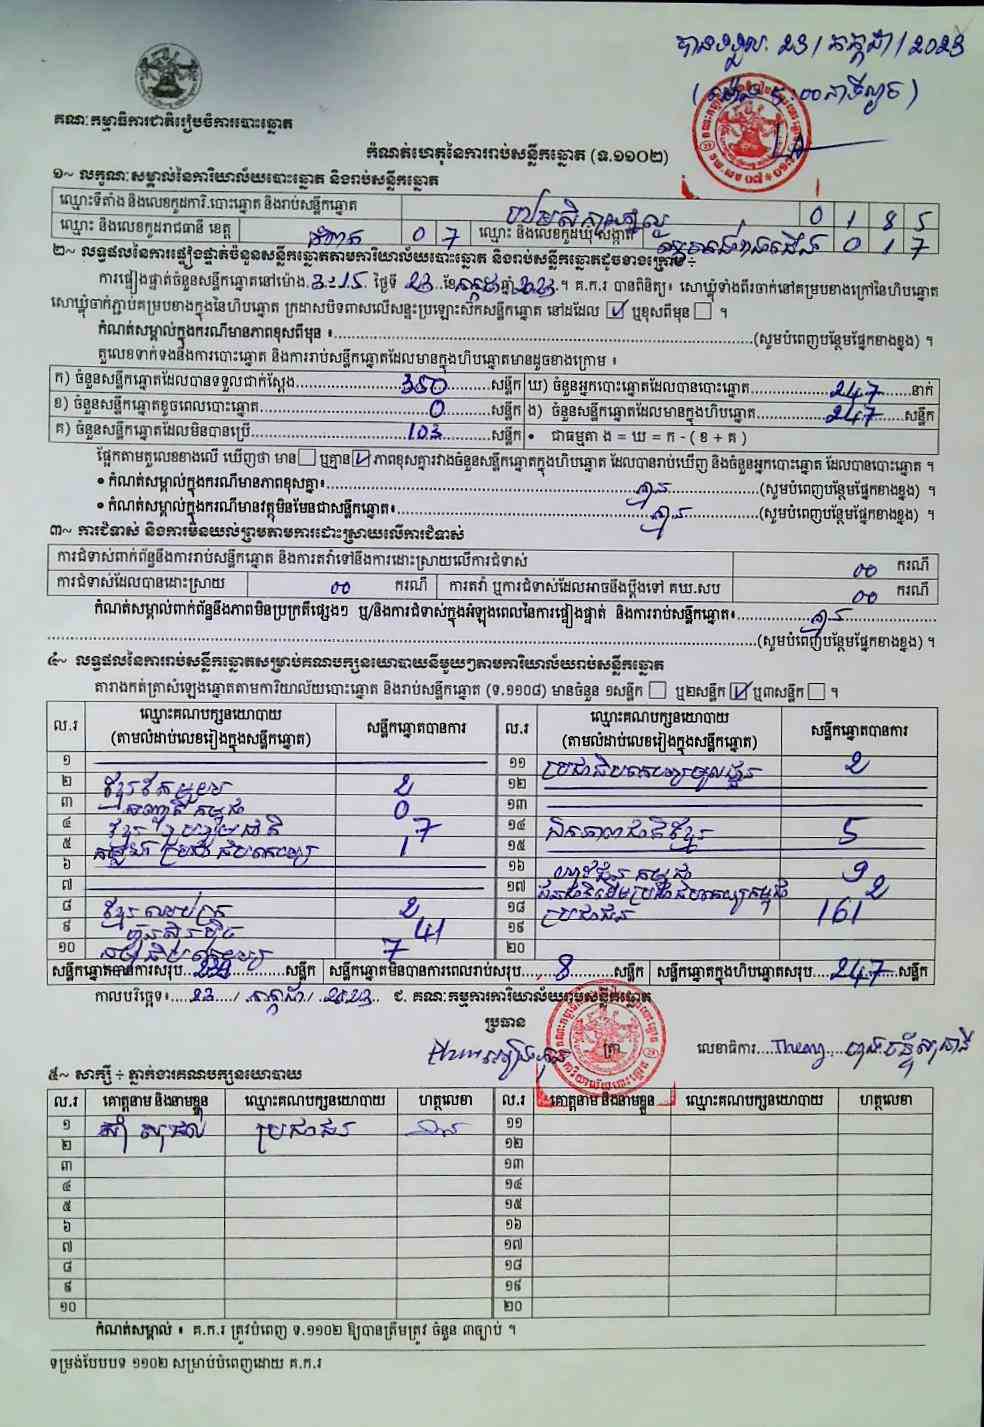 បានទទួល 23 / កក្កដា / 2023
គណៈកម្មាធិការជាតិរៀបចំការបោះឆ្នោត
កំណត់ហេតុនៃការរាប់សន្លឹកឆ្នោត (ទ.១១០២)
១~ លក្ខណៈសម្គាល់នៃការិយាល័យបោះឆ្នោត និងរាប់សន្លឹកឆ្នោត
ឈ្មោះទីតាំង និងលេខកូដការិ.បោះឆ្នោត និងរាប់សន្លឹកឆ្នោត 0 1 8 5
ឈ្មោះ និងលេខកូដរាជធានី ខេត្ត កំពត 0 7 ឈ្មោះ និងលេខកូដឃុំ សង្កាត់ 0 1 7
២~ លទ្ធផលនៃការផ្ទៀងផ្ទាត់ចំនួនសន្លឹកឆ្នោតតាមការិយាល័យបោះឆ្នោត និងរាប់សន្លឹកឆ្នោតដូចខាងក្រោម ÷
ការផ្ទៀងផ្ទាត់ចំនួនសន្លឹកឆ្នោតនៅម៉ោង 3:15 ថ្ងៃទី 23 ខែ កក្កដា ឆ្នាំ 2023 ។ គ.ក.រ បានពិនិត្យ៖ សោឃ្លុំទាំងពីរចាក់នៅគម្របខាងក្រៅនៃហិបឆ្នោត
សោឃ្លុំចាក់ភ្ជាប់គម្របខាងក្នុងនៃហិបឆ្នោត ក្រដាសបិទពាសលើសន្ទះប្រឡោះស៊កសន្លឹកឆ្នោត នៅដដែល ☑ ឬខុសពីមុន ☐ ។
កំណត់សម្គាល់ក្នុងករណីមានភាពខុសពីមុន ៖ (សូមបំពេញបន្ថែមផ្នែកខាងខ្នង) ។
តួលេខទាក់ទងនឹងការបោះឆ្នោត និងការរាប់សន្លឹកឆ្នោតដែលមានក្នុងហិបឆ្នោតមានដូចខាងក្រោម ៖
ក) ចំនួនសន្លឹកឆ្នោតដែលបានទទួលជាក់ស្តែង 350 សន្លឹក ឃ) ចំនួនអ្នកបោះឆ្នោតដែលបានបោះឆ្នោត 247 នាក់
ខ) ចំនួនសន្លឹកឆ្នោតខូចពេលបោះឆ្នោត 0 សន្លឹក ង) ចំនួនសន្លឹកឆ្នោតដែលមានក្នុងហិបឆ្នោត 247 សន្លឹក
គ) ចំនួនសន្លឹកឆ្នោតដែលមិនបានប្រើ 103 សន្លឹក • ជាធម្មតា ង = ឃ = ក - ( ខ + គ )
ផ្អែកតាមតួលេខខាងលើ ឃើញថា មាន ☐ ឬគ្មាន ☑ ភាពខុសគ្នារវាងចំនួនសន្លឹកឆ្នោតក្នុងហិបឆ្នោត ដែលបានរាប់ឃើញ និងចំនួនអ្នកបោះឆ្នោត ដែលបានបោះឆ្នោត ។
• កំណត់សម្គាល់ក្នុងករណីមានភាពខុសគ្នា៖ គ្មាន (សូមបំពេញបន្ថែមផ្នែកខាងខ្នង) ។
• កំណត់សម្គាល់ក្នុងករណីមានវត្ថុមិនមែនជាសន្លឹកឆ្នោត៖ គ្មាន (សូមបំពេញបន្ថែមផ្នែកខាងខ្នង) ។
៣~ ការជំទាស់ និងការមិនយល់ព្រមតាមការដោះស្រាយលើការជំទាស់
ការជំទាស់ពាក់ព័ន្ធនឹងការរាប់សន្លឹកឆ្នោត និងការតវ៉ាទៅនឹងការដោះស្រាយលើការជំទាស់ 00 ករណី
ការជំទាស់ដែលបានដោះស្រាយ 00 ករណី ការតវ៉ា ឬការជំទាស់ដែលអាចនឹងប្តឹងទៅ គឃ.សប 00 ករណី
កំណត់សម្គាល់ពាក់ព័ន្ធនឹងភាពមិនប្រក្រតីផ្សេងៗ ឬ/និងការជំទាស់ក្នុងអំឡុងពេលនៃការផ្ទៀងផ្ទាត់ និងការរាប់សន្លឹកឆ្នោត៖ គ្មាន
(សូមបំពេញបន្ថែមផ្នែកខាងខ្នង) ។
៤~ លទ្ធផលនៃការរាប់សន្លឹកឆ្នោតសម្រាប់គណបក្សនយោបាយនីមួយៗតាមការិយាល័យរាប់សន្លឹកឆ្នោត
តារាងកត់ត្រាសំឡេងឆ្នោតតាមការិយាល័យបោះឆ្នោត និងរាប់សន្លឹកឆ្នោត (ទ.១១០៨) មានចំនួន ១សន្លឹក ☐ ឬ២សន្លឹក ☑ ឬ៣សន្លឹក ☐ ។
ល.រ ឈ្មោះគណបក្សនយោបាយ (តាមលំដាប់លេខរៀងក្នុងសន្លឹកឆ្នោត) សន្លឹកឆ្នោតបានការ ល.រ ឈ្មោះគណបក្សនយោបាយ (តាមលំដាប់លេខរៀងក្នុងសន្លឹកឆ្នោត) សន្លឹកឆ្នោតបានការ
១ ១១ 2
២ ខ្មែរតែមួយ 2 ១២
៣ សញ្ជាតិកម្ពុជា 0 ១៣
៤ ខ្មែររួបរួមជាតិ 7 ១៤ ឯកភាពជាតិខ្មែរ 5
៥ 1 ១៥
៦ ១៦ កម្ពុជា 9
៧ ១៧ 2
៨ ខ្មែរ 2 ១៨ ប្រជាជន 161
៩ ហ៊្វុនស៊ិនប៉ិច 41 ១៩
១០ 7 ២០
សន្លឹកឆ្នោតបានការសរុប 239 សន្លឹក សន្លឹកឆ្នោតមិនបានការពេលរាប់សរុប 8 សន្លឹក សន្លឹកឆ្នោតក្នុងហិបឆ្នោតសរុប 247 សន្លឹក
កាលបរិច្ឆេទ៖ 23 / កក្កដា / 2023 ជ. គណៈកម្មការការិយាល័យរាប់សន្លឹកឆ្នោត
ប្រធាន
ត្រា លេខាធិការ
៥~ សាក្សី ÷ ភ្នាក់ងារគណបក្សនយោបាយ
ល.រ គោត្តនាម និងនាមខ្លួន ឈ្មោះគណបក្សនយោបាយ ហត្ថលេខា ល.រ គោត្តនាម និងនាមខ្លួន ឈ្មោះគណបក្សនយោបាយ ហត្ថលេខា
១ ប្រជាជន ១១
២ ១២
៣ ១៣
៤ ១៤
៥ ១៥
៦ ១៦
៧ ១៧
៨ ១៨
៩ ១៩
១០ ២០
កំណត់សម្គាល់ ៖ គ.ក.រ ត្រូវបំពេញ ទ.១១០២ ឱ្យបានត្រឹមត្រូវ ចំនួន ៣ច្បាប់ ។
ទម្រង់បែបបទ ១១០២ សម្រាប់បំពេញដោយ គ.ក.រ